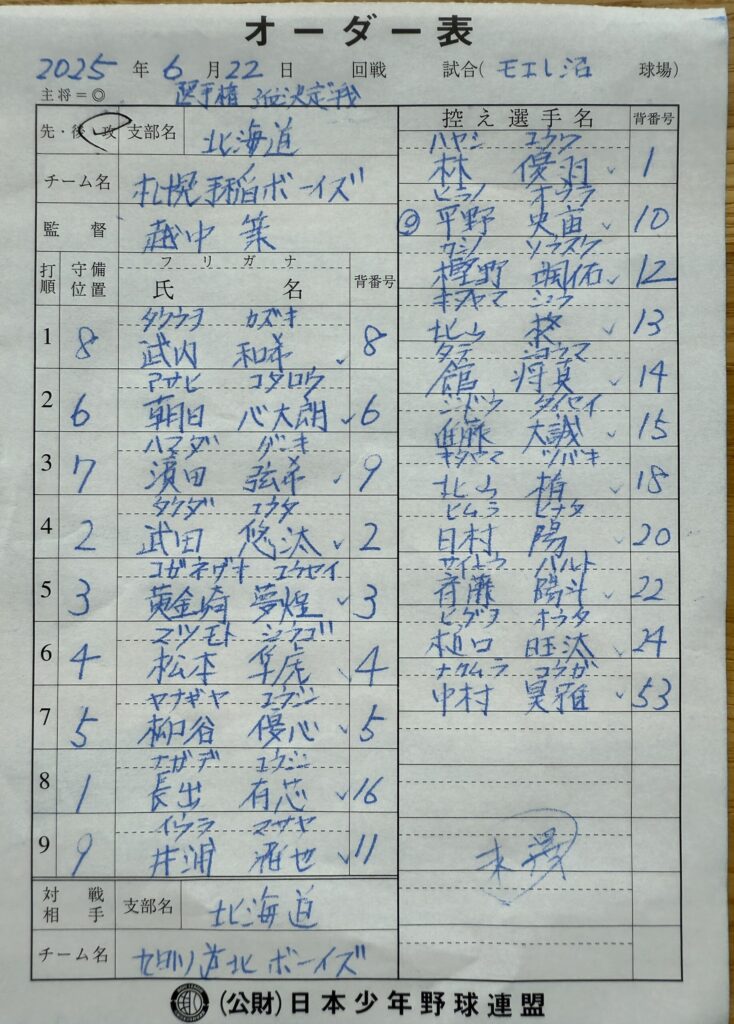 オーダー表
2025 年 6 月 22 日 回戦 試合( モエレ沼 球場)
主将=◎ 選手権 3位決定戦
先・後・攻 支部名 北海道
チーム名 札幌手稲ボーイズ
監督 越中 築
打順 守備位置 フリガナ 氏名 背番号
タケウチ カズキ
1 8 武内 和希 8
アサヒ コタロウ
2 6 朝日 心太朗 6
ハマダ ゲンキ
3 7 濱田 弦希 9
タケダ ユウタ
4 2 武田 悠汰 2
コガネザキ ユウセイ
5 3 黄金崎 夢煌 3
マツモト
6 4 松本 隼虎 4
ヤナギヤ ユウシン
7 5 柳谷 優心 5
ナガデ ユウシン
8 1 長出 有芯 16
イウラ マサヤ
9 9 井浦 雅也 11
対戦相手 支部名 北海道
チーム名 旭川道北ボーイズ
控え選手名 背番号
ハヤシ ユウワ
林 優羽 1
ヒラノ オゾラ
◎ 平野 央宙 10
カシノ ソウスケ
樫野 颯佑 12
キタヤマ シュウ
北山 柊 13
タテ ショウマ
舘 将真 14
シンドウ タイセイ
進藤 大誠 15
キタヤマ ツバキ
北山 椿 18
ヒムラ ヒナタ
日村 陽 20
サイトウ ハルト
斉藤 陽斗 22
ヒグチ オウタ
樋口 旺汰 24
ナカムラ コウガ
中村 昊雅 53
(公財)日本少年野球連盟